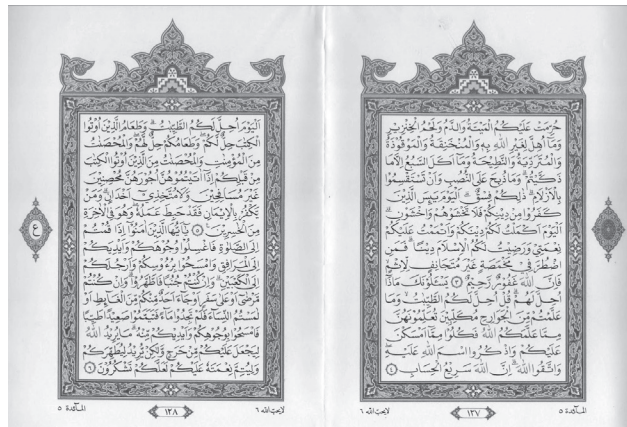 حُرِّمَتْ عَلَيْكُمُ الْمَيْتَةُ وَالدَّمُ وَلَحْمُ الْخِنْزِيرِ
وَمَا أُهِلَّ لِغَيْرِ اللَّهِ بِهِ وَالْمُنْخَنِقَةُ وَالْمَوْقُوذَةُ
وَالْمُتَرَدِّيَةُ وَالنَّطِيحَةُ وَمَا أَكَلَ السَّبُعُ إِلَّا مَا
ذَكَّيْتُمْ وَمَا ذُبِحَ عَلَى النُّصُبِ وَأَنْ تَسْتَقْسِمُوا
بِالْأَزْلَامِ ذَلِكُمْ فِسْقٌ الْيَوْمَ يَئِسَ الَّذِينَ
كَفَرُوا مِنْ دِينِكُمْ فَلَا تَخْشَوْهُمْ وَاخْشَوْنِ
الْيَوْمَ أَكْمَلْتُ لَكُمْ دِينَكُمْ وَأَتْمَمْتُ عَلَيْكُمْ
نِعْمَتِي وَرَضِيتُ لَكُمُ الْإِسْلَامَ دِينًا فَمَنِ
اضْطُرَّ فِي مَخْمَصَةٍ غَيْرَ مُتَجَانِفٍ لِإِثْمٍ
فَإِنَّ اللَّهَ غَفُورٌ رَحِيمٌ ٣ يَسْئَلُونَكَ مَاذَا
أُحِلَّ لَهُمْ قُلْ أُحِلَّ لَكُمُ الطَّيِّبَاتُ وَمَا
عَلَّمْتُمْ مِنَ الْجَوَارِحِ مُكَلِّبِينَ تُعَلِّمُونَهُنَّ
مِمَّا عَلَّمَكُمُ اللَّهُ فَكُلُوا مِمَّا أَمْسَكْنَ
عَلَيْكُمْ وَاذْكُرُوا اسْمَ اللَّهِ عَلَيْهِ
وَاتَّقُوا اللَّهَ إِنَّ اللَّهَ سَرِيعُ الْحِسَابِ ٤
المائدة ٥
١٢٧
لا يحب الله ٦
الْيَوْمَ أُحِلَّ لَكُمُ الطَّيِّبَاتُ وَطَعَامُ الَّذِينَ أُوتُوا
الْكِتَابَ حِلٌّ لَكُمْ وَطَعَامُكُمْ حِلٌّ لَهُمْ وَالْمُحْصَنَاتُ
مِنَ الْمُؤْمِنَاتِ وَالْمُحْصَنَاتُ مِنَ الَّذِينَ أُوتُوا الْكِتَابَ
مِنْ قَبْلِكُمْ إِذَا آتَيْتُمُوهُنَّ أُجُورَهُنَّ مُحْصِنِينَ
غَيْرَ مُسَافِحِينَ وَلَا مُتَّخِذِي أَخْدَانٍ وَمَنْ
يَكْفُرْ بِالْإِيمَانِ فَقَدْ حَبِطَ عَمَلُهُ وَهُوَ فِي الْآخِرَةِ
مِنَ الْخَاسِرِينَ ٥ يَا أَيُّهَا الَّذِينَ آمَنُوا إِذَا قُمْتُمْ
إِلَى الصَّلَوةِ فَاغْسِلُوا وُجُوهَكُمْ وَأَيْدِيَكُمْ
إِلَى الْمَرَافِقِ وَامْسَحُوا بِرُءُوسِكُمْ وَأَرْجُلَكُمْ
إِلَى الْكَعْبَيْنِ وَإِنْ كُنْتُمْ جُنُبًا فَاطَّهَّرُوا وَإِنْ كُنْتُمْ
مَرْضَى أَوْ عَلَى سَفَرٍ أَوْ جَاءَ أَحَدٌ مِنْكُمْ مِنَ الْغَائِطِ أَوْ
لَمَسْتُمُ النِّسَاءَ فَلَمْ تَجِدُوا مَاءً فَتَيَمَّمُوا صَعِيدًا طَيِّبًا
فَامْسَحُوا بِوُجُوهِكُمْ وَأَيْدِيكُمْ مِنْهُ مَا يُرِيدُ اللَّهُ
لِيَجْعَلَ عَلَيْكُمْ مِنْ حَرَجٍ وَلَكِنْ يُرِيدُ لِيُطَهِّرَكُمْ
وَلِيُتِمَّ نِعْمَتَهُ عَلَيْكُمْ لَعَلَّكُمْ تَشْكُرُونَ ٦
ع
لا يحب الله ٦
١٢٨
المائدة ٥